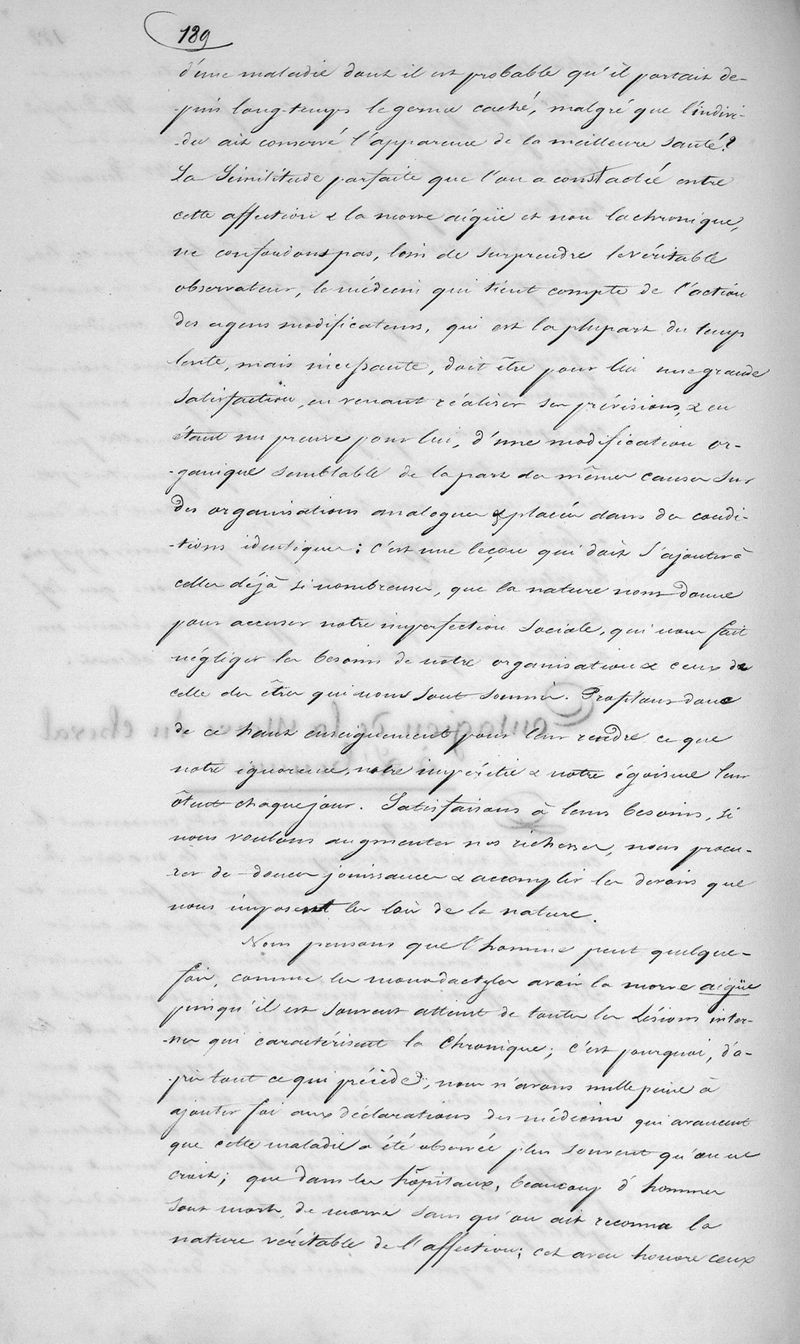 139
d'une maladie dont il est probable qu'il portait de-
-puis long-temps le germe caché, malgré que l'indivi-
-du ait conservé l'apparence de la meilleure santé?
La Similitude parfaite que l'on a constactée entre
cette affection & la morve aigüe et non la chronique,
ne confondons pas, loin de surprendre le véritable
observateur, le médecin qui tient compte de l'action
des agens modificateurs, qui est la plupart du temps
lente, mais incessante, doit être pour lui une grande
satisfaction, en venant réaliser ses prévisions, & en
étant un preuve pour lui, d'une modification or-
-ganique semblable de la part des mêmes causes sur
des organisations analogues & placées dans des condi-
-tions identiques: c'est une leçon qui doit s'ajouter à
celles déjà si nombreuses, que la nature nous donne
pour accuser notre imperfection sociale, qui nous fait
négliger les besoins de notre organisation & ceux de
celle des êtres qui nous sont soumis. Profitons donc
de ce haut enseignement pour leur rendre ce que
notre ignorance, notre impéritie & notre égoisme leur
ôtent chaque jour. Satisfaisons à leurs besoins, si
nous voulons augmenter nos richesses, nous procu-
rer de douces jouissances & accomplir les devoirs que
nous imposent les lois de la nature.
Nous pensons que l'homme peut quelque-
fois, comme les monodactyles avoir la morve aigüe
puisqu'il est souvent atteint de toutes les lésions inter-
-nes qui caractérisent la Chronique; c'est pourquoi, d'a-
près tout ce qui précède, nous n'avons nulle peine à
ajouter foi aux déclarations des médecins qui avancent
que cette maladie a été observée plus souvent qu'on ne
croit; que dans les hôpitaux, beaucoup d'hommes
sont morts de morve sans qu'on ait reconnu la
nature véritable de l'affection; cet aveu honore ceux